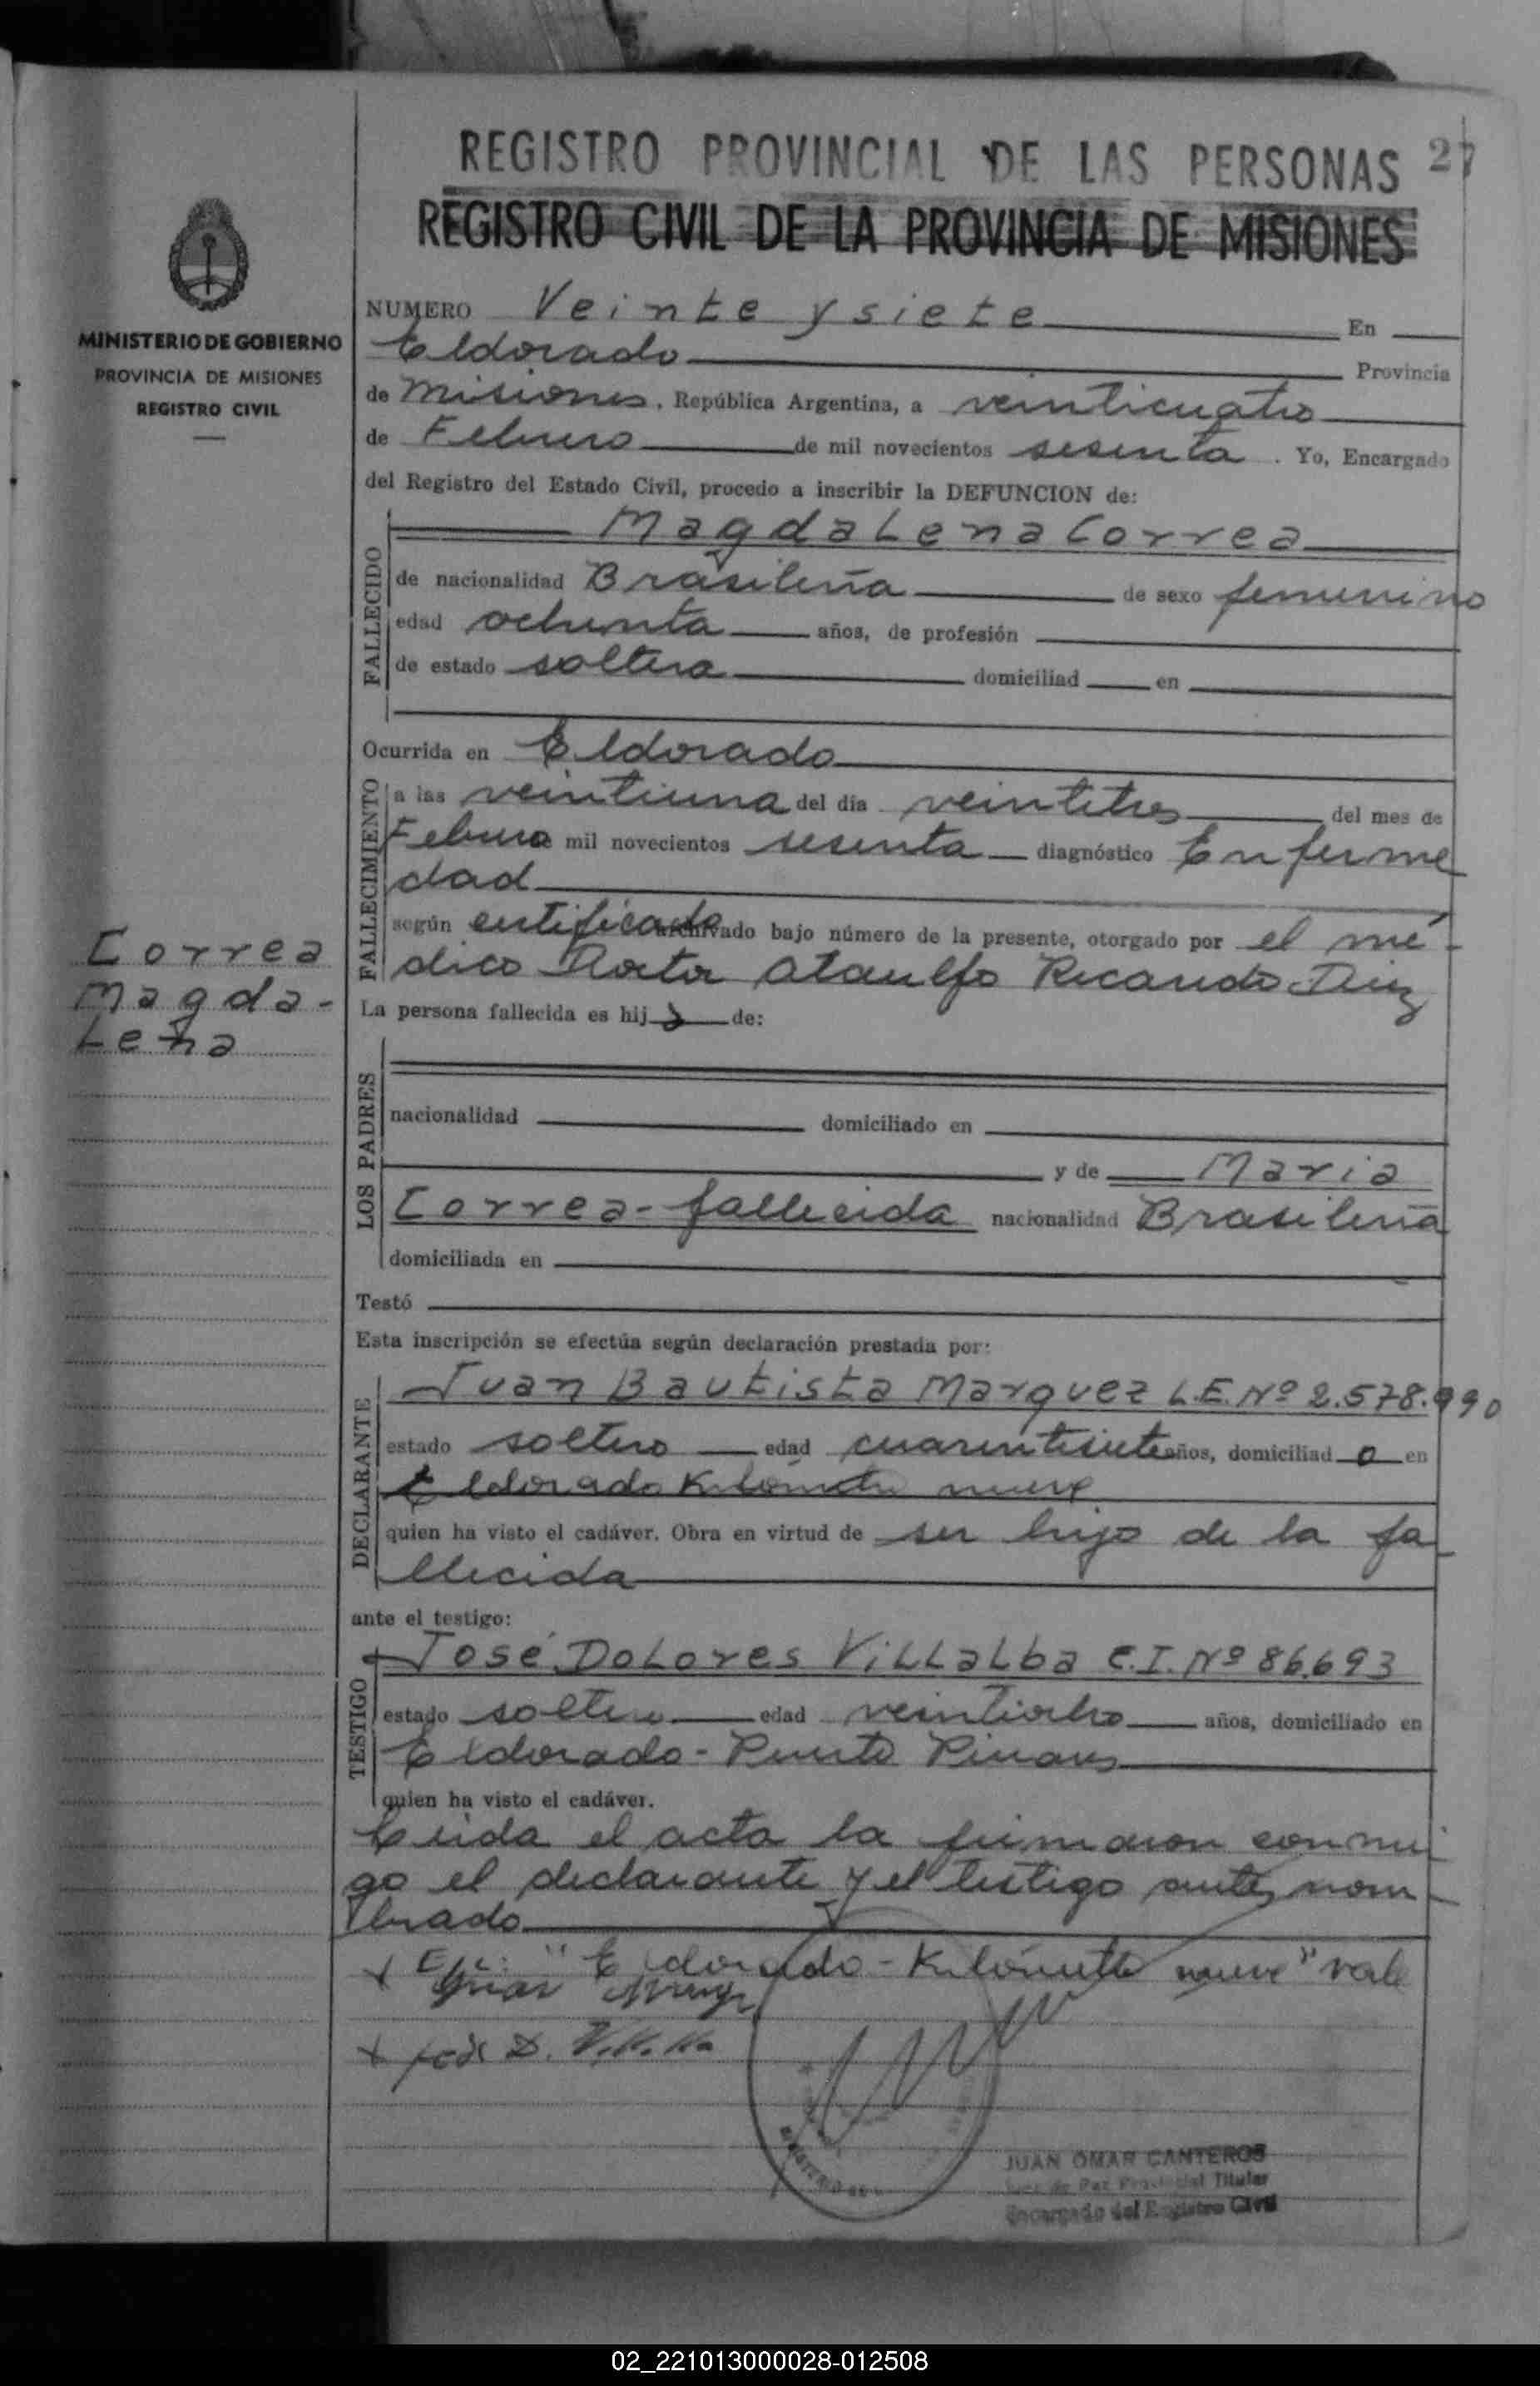 REGISTRO PROVINCIAL DE LAS PERSONAS 27
REGISTRO CIVIL DE LA PROVINCIA DE MISIONES
MINISTERIO DE GOBIERNO
PROVINCIA DE MISIONES
REGISTRO CIVIL
NUMERO Veinte y siete En
Eldorado Provincia
de Misiones, República Argentina, a veinticuatro
de Febrero de mil novecientos sesenta. Yo, Encargado
del Registro del Estado Civil, procedo a inscribir la DEFUNCION de:
FALLECIDO
Magdalena Correa
de nacionalidad Brasileña de sexo femenino
edad ochenta años, de profesión
de estado soltera domiciliad en
Ocurrida en Eldorado
FALLECIMIENTO
a las veintiuna del día veintitres del mes de
Febrero mil novecientos sesenta diagnóstico Enferme
dad
según certificado archivado bajo número de la presente, otorgado por el mé-
dico Ataulfo Ricardo
Correa
Magda-
Lena
La persona fallecida es hija de:
LOS PADRES
nacionalidad domiciliado en
y de Maria
Correa - fallecida nacionalidad Brasileña
domiciliada en
Testó
Esta inscripción se efectúa según declaración prestada por:
DECLARANTE
Juan Bautista Marquez L.E. Nº 2.578.990
estado soltero edad cuarentisiete años, domiciliado en
Eldorado Kilómetro nueve
quien ha visto el cadáver. Obra en virtud de ser hijo de la fa
llecida
ante el testigo:
TESTIGO
José Dolores Villalba C.I. Nº 86.693
estado soltero edad veintiocho años, domiciliado en
Eldorado - Puerto Pinares
quien ha visto el cadáver.
Leida el acta la firmaron conmi
go el declarante y el testigo antes nom-
brado
"Eldorado - Kilómetro nueve" vale
JUAN OMAR CANTEROS
Juez de Paz Provincial Titular
Encargado del Registro Civil
02_221013000028-012508